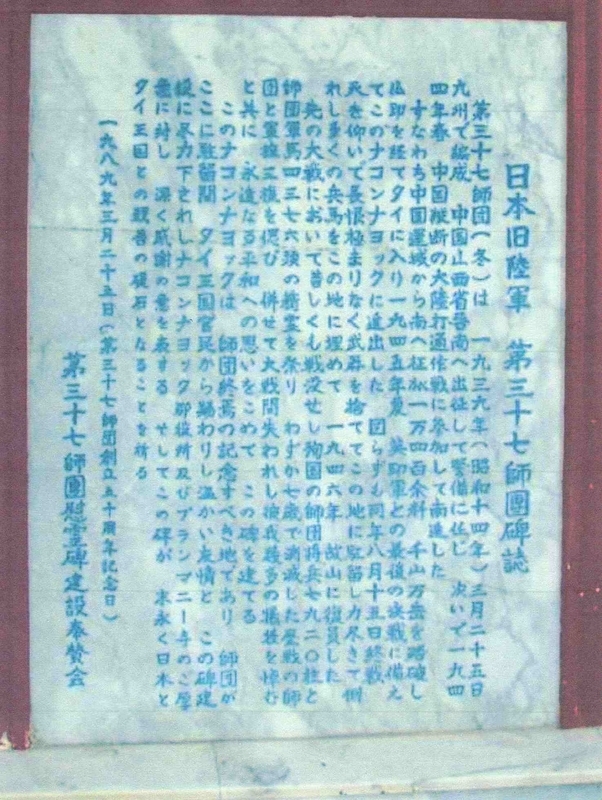 日本旧陸軍　第三十七師團碑誌
第三十七師団(冬)は　一九三九年(昭和十四年)三月二十五日
九州で編成　中国山西省晋南へ出征して警備に任じ　次いで一九四
四年春　中国縦断の大陸打通作戦に参加して南進した
すなわち中国運城から南へ征旅一万四百余粁　千山万岳を踏破し
仏印を経てタイに入り一九四五年夏　英印軍との最後の決戦に備え
てこのナコンナヨックに進出した　図らずも同年八月十五日終戦
天を仰いで長恨極まりなく武器を捨ててこの地に駐留し力尽きて倒
れし多くの兵馬をこの地に埋めて　一九四六年　故山に復員した
先の大戦において昔しくも戦没せし殉国の師団将兵七九二〇柱と
師団軍馬四三七六頭の精霊を祭り　わずか七歳で消滅した歴戦の師
団と軍旗三旒を偲び　併せて大戦間失われし彼我数多の犠牲を悼む
と共に　永遠なる平和への思いをこめて　この碑を建てる
このナコンナヨックは　師団終焉の記念すべき地であり　師団が
ここに駐留間　タイ王国官民から賜わりし温かい友情と　この碑建
設に尽力下されしナコンナヨック郡役所及びプランマニー寺のご厚
意に対し　深く感謝の意を表する　そしてこの碑が　末永く日本と
タイ王国との親善の礎石となることを祈る
一九八九年三月二十五日(第三十七師団創立五十周年記念日)
第三十七師團慰霊碑建設奉賛会